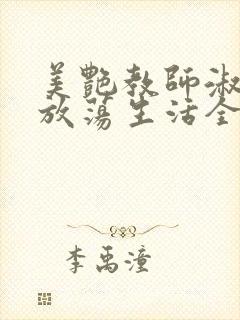 美艷教師淑
放蕩生活全
李禹潼